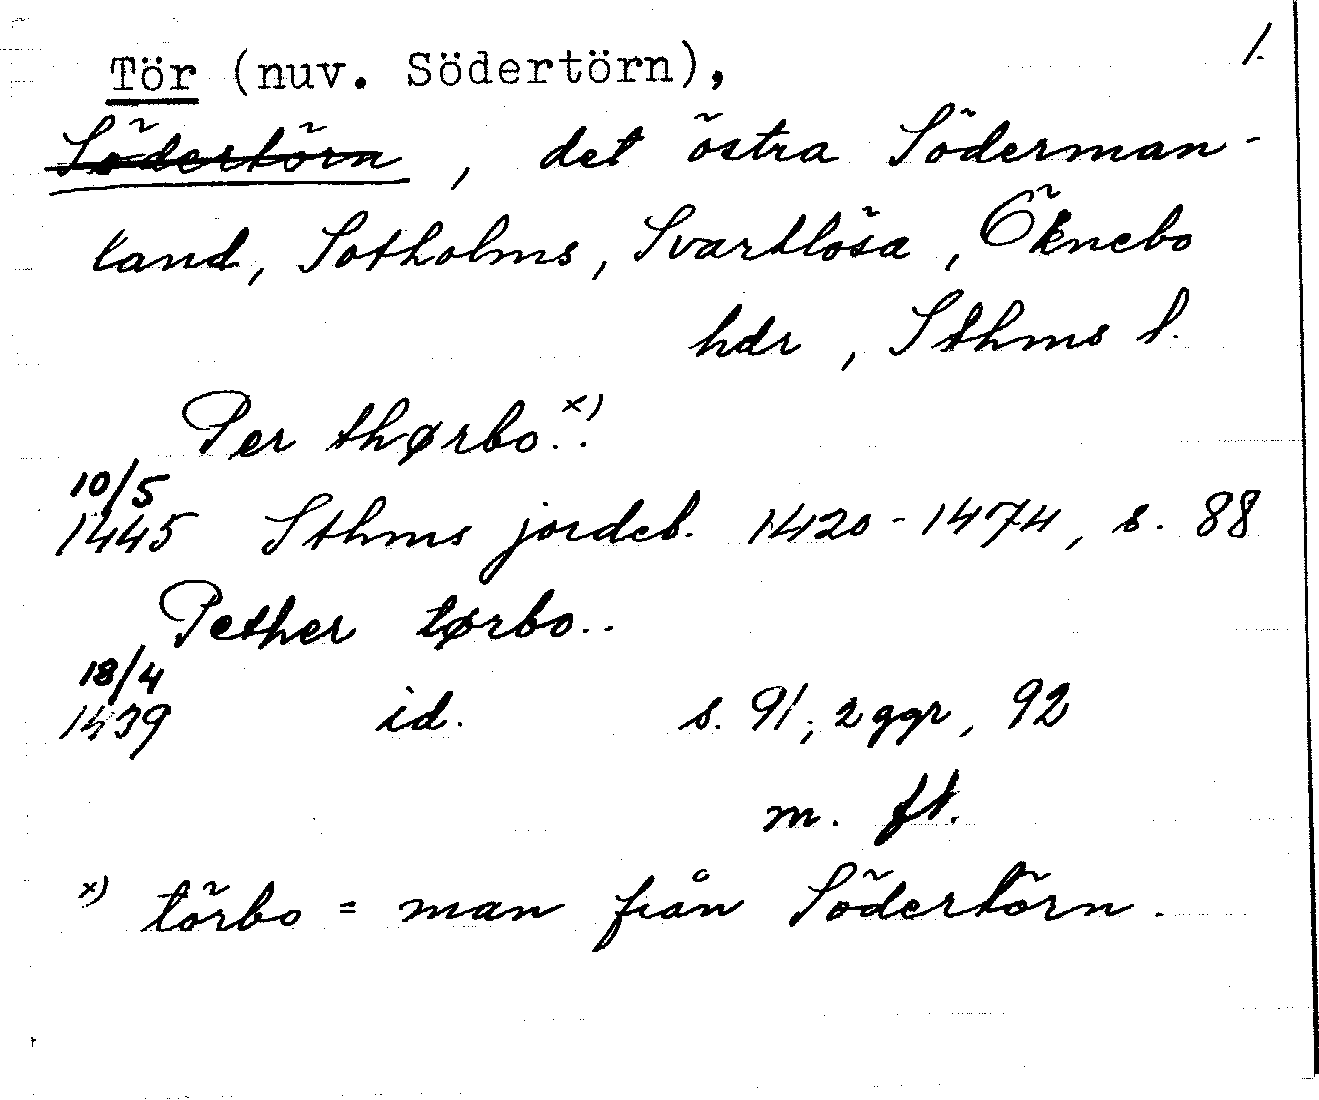 Tör (nuv. Södertörn), 1.
Södertörn, det östra Söderman-
land, Sotholms, Svartlösa, Öknebo
hdr, Sthms l.
Per thørbo..x)
10/5
1445 Sthms jordeb. 1420-1474, s. 88
Pether tørbo..
18/4
1439 id. s. 91, 2 ggr, 92
m. fl.
x) törbo = man från Södertörn.